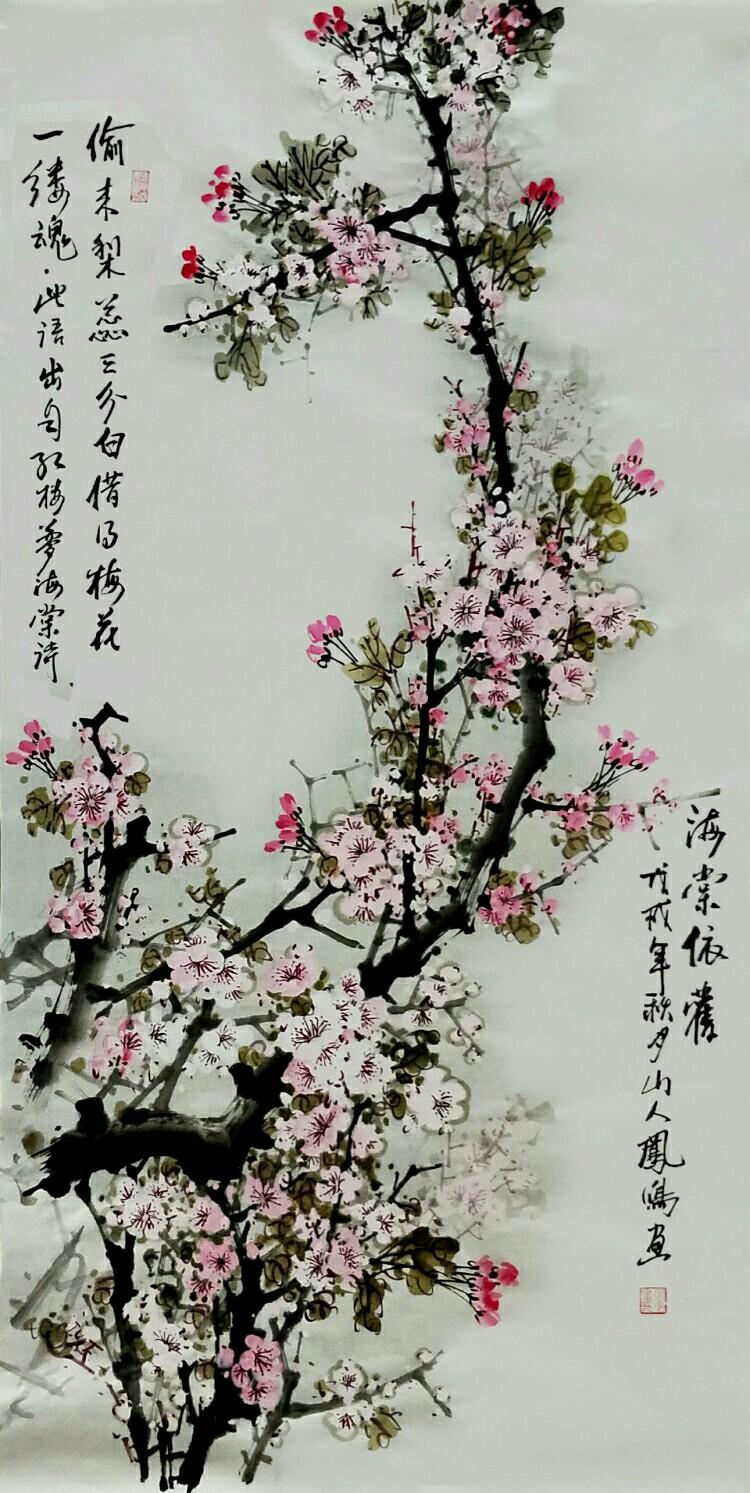 偷来梨蕊三分白借得梅花
一缕魂·此语出自红梅梦海棠诗.
海棠依舊
戊戌年秋月山人鳳鳴画